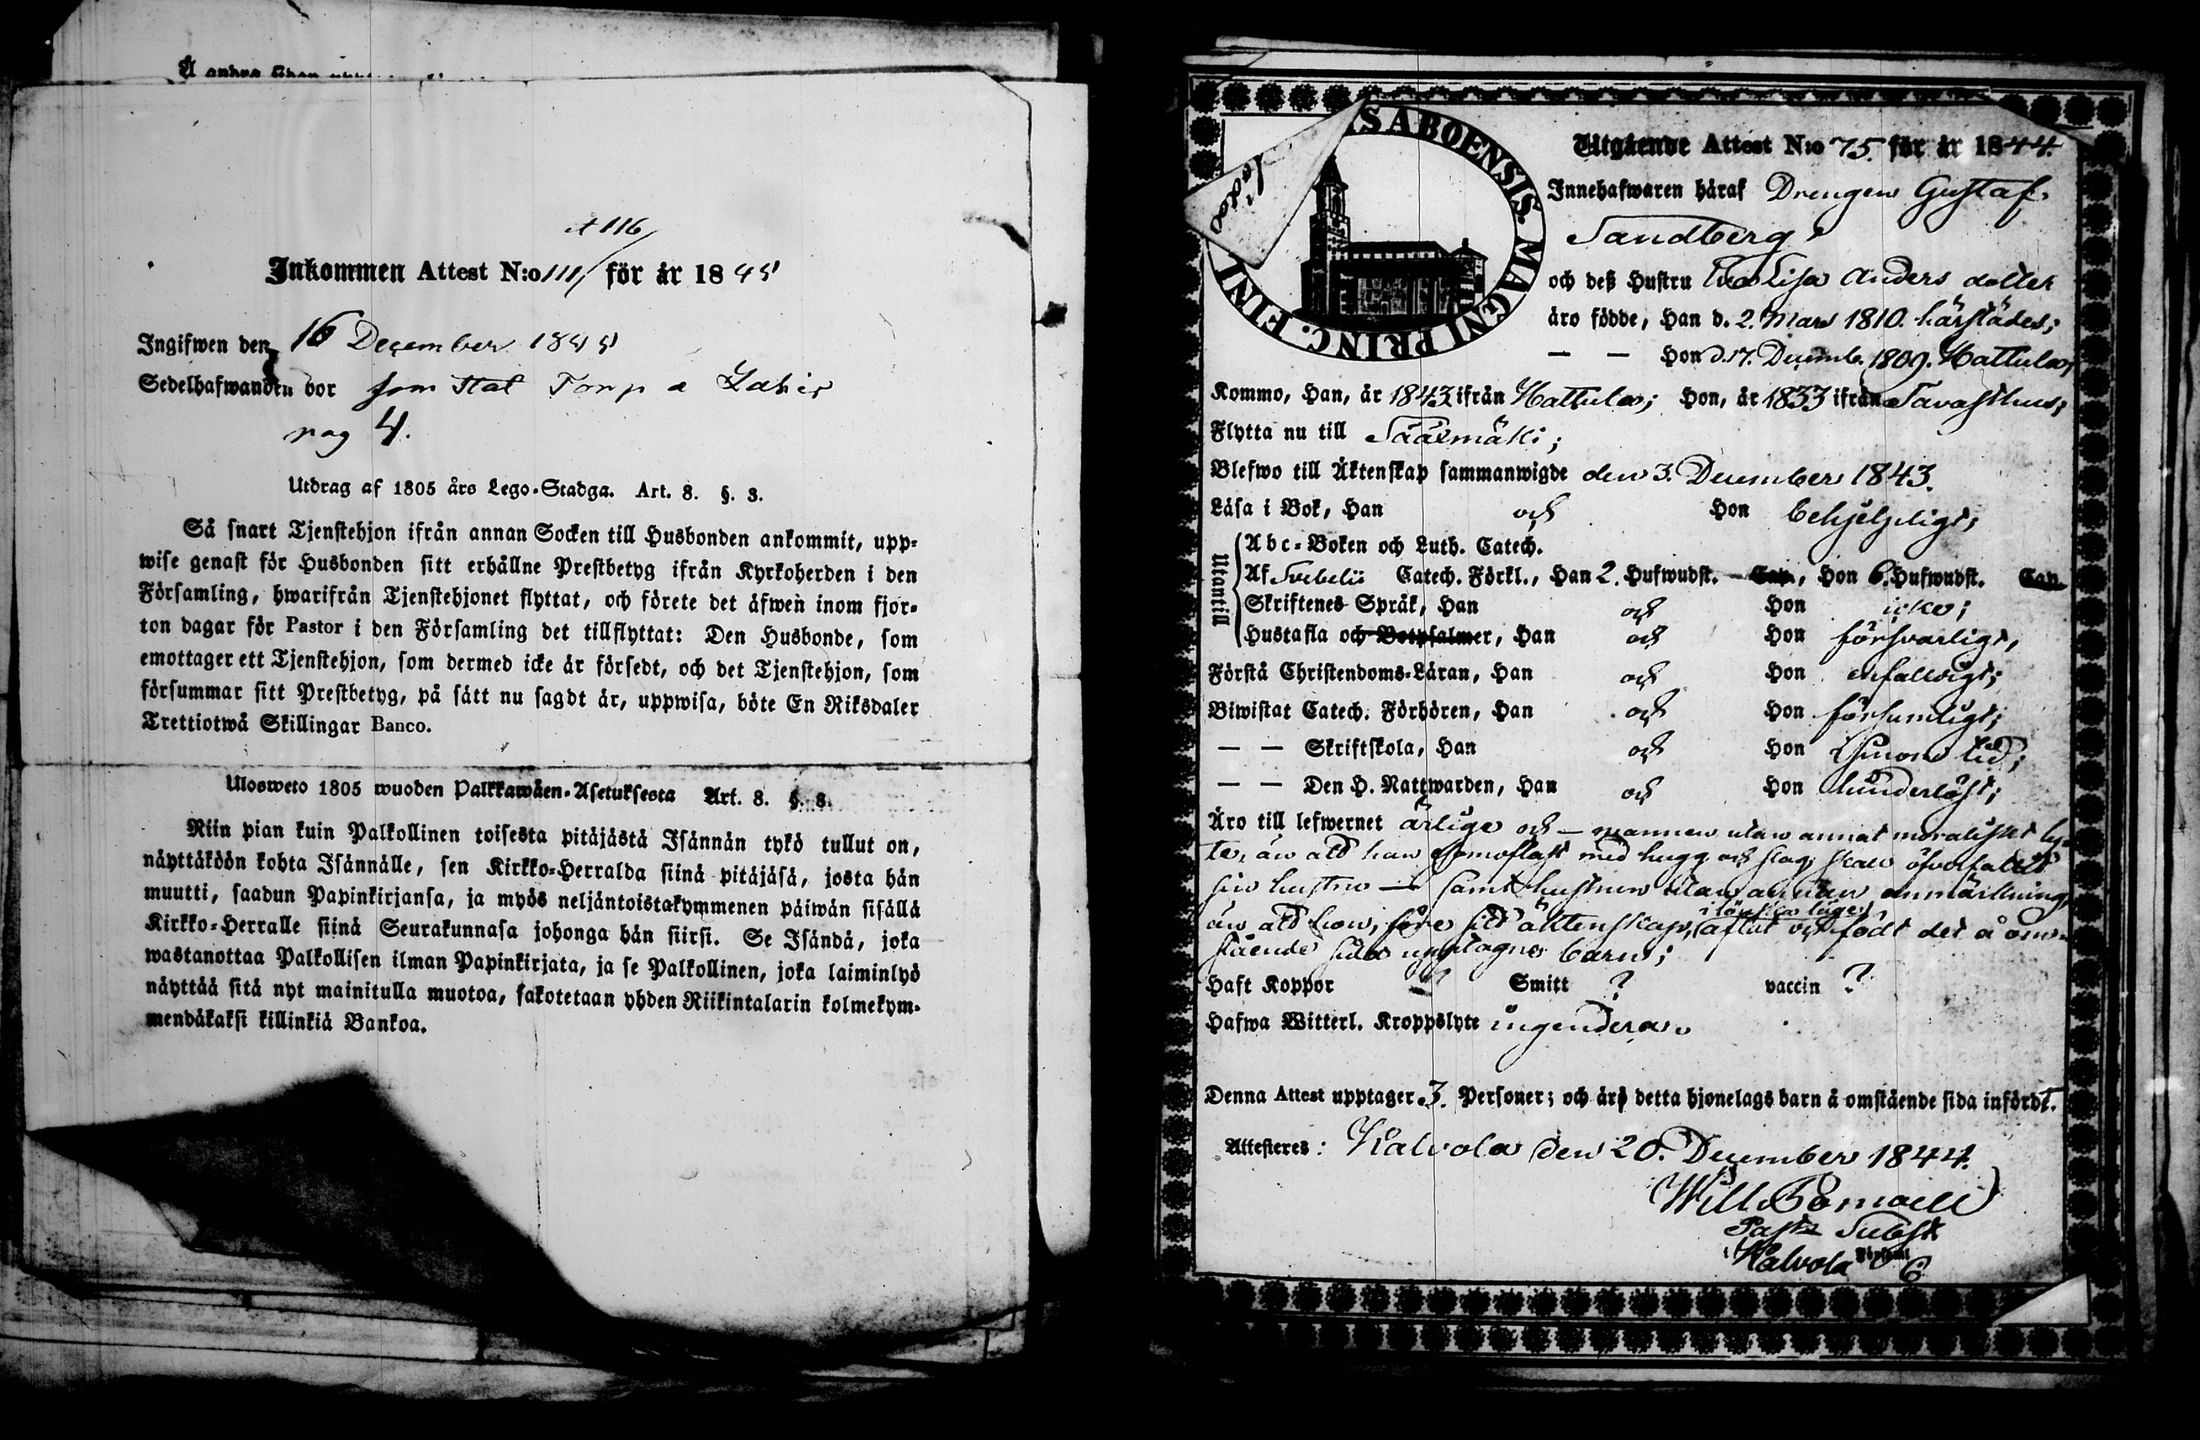 A 116
Inkommen Attest N:o 111/ för år 1845
Ingifwen den 16 December 1845
Sedelhafwanden bor som Stat Torp a
pag 4.
Utdrag af 1805 års Lego-Stadga. Art. 8. §. 3.
Så snart Tjenstehjon ifrån annan Socken till Husbonden ankommit, upp-
wise genast för Husbonden sitt erhållne Prestbetyg ifrån Kyrkoherden i den
Församling, hwarifrån Tjenstehjonet flyttat, och förete det äfwen inom fjor-
ton dagar för Pastor i den Församling det tillflyttat: Den Husbonde, som
emottager ett Tjenstehjon, som dermed icke är försedt, och det Tjenstehjon, som
försummar sitt Prestbetyg, på sätt nu sagdt är, uppwisa, böte En Riksdaler
Trettiotwå Skillingar Banco.
Ulosweto 1805 wuoden Palkkawäen-Asetuksesta Art. 8. §. 8.
Niin pian kuin Palkollinen toisesta pitäjästä Isännän tykö tullut on,
näyttäköön kohta Isännälle, sen Kirkko-Herralda siinä pitäjäsä, josta hän
muutti, saadun Papinkirjansa, ja myös neljäntoistakymmenen päiwän sisällä
Kirkko-Herralle siinä Seurakunnasa johonga hän siirsi. Se Isändä, joka
wastanottaa Palkollisen ilman Papinkirjata, ja se Palkollinen, joka laiminlyö
näyttää sitä nyt mainitulla muotoa, sakotetaan yhden Riikintalarin kolmekym-
mendäkaksi killinkiä Bankoa.
S ABOENSIS. MAGNI PRINC. FINL
Utgående Attest N:o 75. för år 1844.
Innehafwaren häraf Drengen Gustaf
Sandberg
och deß Hustru Eva Lisa Anders dotter
äro födde, Han d. 2. Mars 1810. härstädes;
— — Hon d. 17. Decemb. 1809. Hattula;
Kommo, Han, år 1843 ifrån Hattula; Hon, år 1833 ifrån Tavasthus;
Flytta nu till Sääxmäki;
Blefwo till Äktenskap sammanwigde den 3. December 1843.
Läsa i Bok, Han och Hon behjelpligt;
Utantill
Abc-Boken och Luth. Catech.
Af Svebelii Catech. Förkl., Han 2. Hufwudst. Cap., Hon 6. Hufwudst. Cap.
Skriftenes Språk, Han och Hon icke;
Hustafla och Botpsalmer, Han och Hon försvarligt,
Förstå Christendoms-Läran, Han och Hon enfaldigt;
Biwistat Catech. Förhören, Han och Hon försumligt;
— — Skriftskola, Han och Hon i sinom tid;
— — Den H. Nattwarden, Han och Hon hinderlöst;
Äro till lefwernet ärlige och — mannen utan annat moraliskt ly-
te, än att han med hugg och slag skall öfverfallit
sin hustru — samt hustrun utan annan anmärkning,
än att hon, före sitt äktenskap, aflat och födt det å om-
stående sida upptagne barn;
Haft Koppor ? Smitt ? vaccin ?
Hafwa Witterl. Kroppslyte ingendera.
Denna Attest upptager 3. Personer; och äro detta hjonelags barn å omstående sida infördt.
Attesteres: Kalvola den 20. December 1844.
Past: Subst
i Kalvola Församl